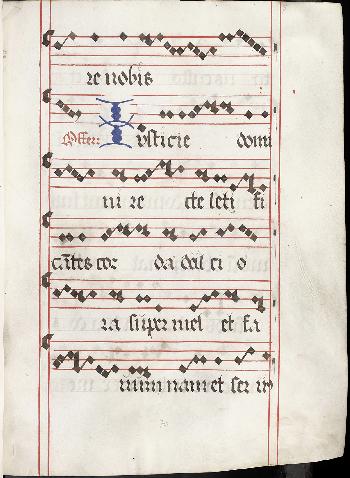 re nobis
Offer. Iusticie domi
ni re cte leti fi
cantes cor da dulci o
ra super mel et fa
uum nam et ser uus